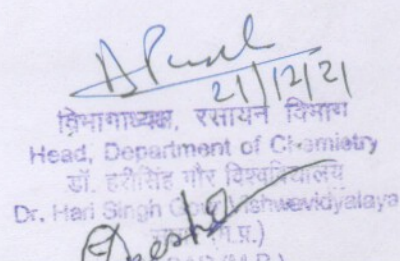 21/12/21
विभागाध्यक्ष, रसायन विभाग
Head, Department of Chemistry
डॉ. हरीसिंह गौर विश्वविद्यालय
Dr. Hari Singh Gour Vishwavidyalaya
(म.प्र.)
(M.P.)